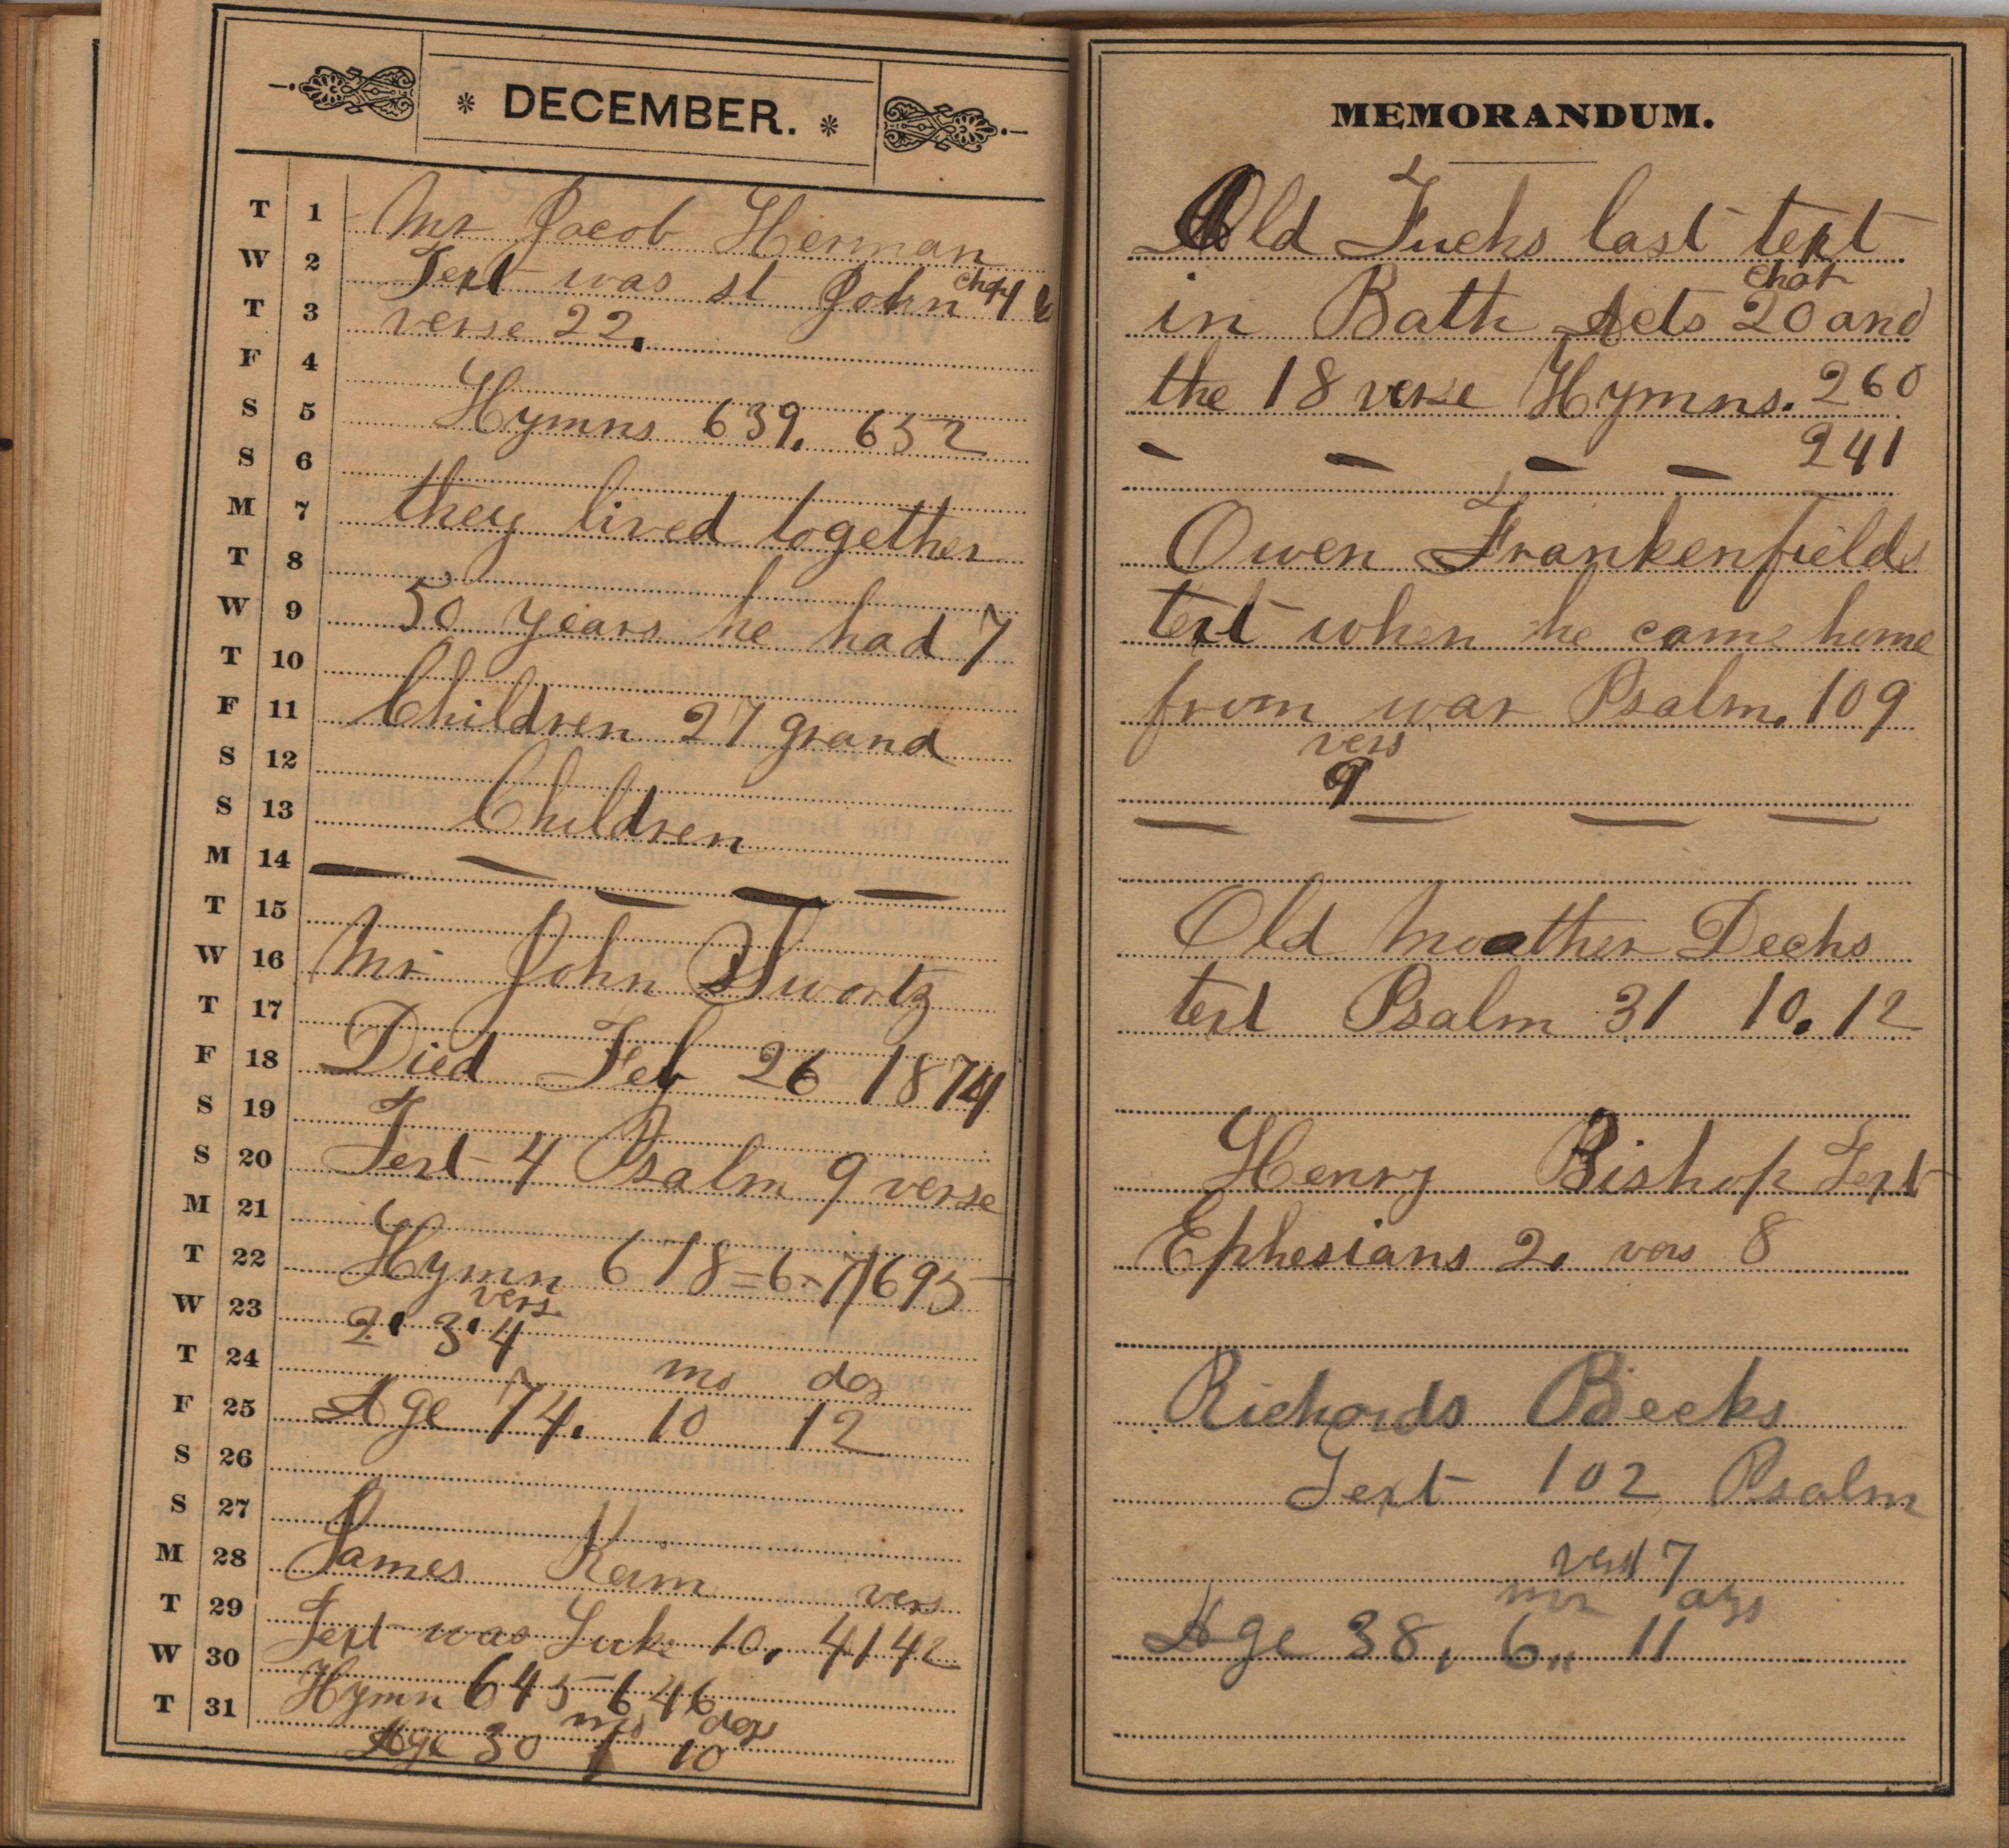 * DECEMBER. *
T 1 Mr Jacob Herman
W 2 Text was st John chap
T 3 verse 22.
F 4
S 5 Hymns 639. 652
S 6
M 7 they lived together
T 8
W 9 50 years he had 7
T 10
F 11 Children 27 grand
S 12
S 13 Children
M 14
T 15
W 16 Mr John Swortz
T 17
F 18 Died Feb 26 1874
S 19
S 20 Text 4 Psalm 9 verse
M 21
T 22 Hymn 618=6-7/695
vers
W 23 2. 3. 4
T 24 mo dos
F 25 Age 74. 10 12
S 26
S 27
M 28 James Keim vers
T 29 Text was Luke 10, 4142
W 30 Hymn 645 646
T 31 mos days
Age 30 1 10
MEMORANDUM.
Old Fuchs last text
chat
in Bath Acts 20 and
the 18 verse Hymns. 260
— — — — 241
Owen Frankenfields
text when he came home
from war Psalm. 109
vers
9
— — — —
Old moather Dechs
text Psalm 31 10. 12
Henry Bishop Text
Ephesians 2. vers 8
Richards Beeks
Text 102 Psalm
vers 7
Age 38, 6,, 11